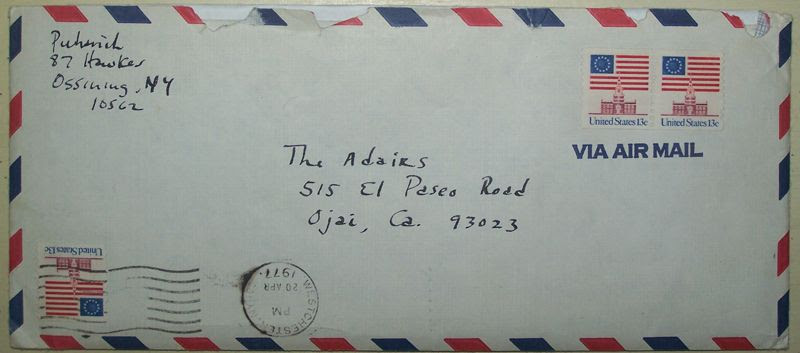 87 Hawkes
Ossining, NY
10562
United States 13c
United States 13c
VIA AIR MAIL
The Adairs
515 El Paseo Road
Ojai, Ca. 93023
United States 13c
WESTCHESTER
PM
20 APR
1977